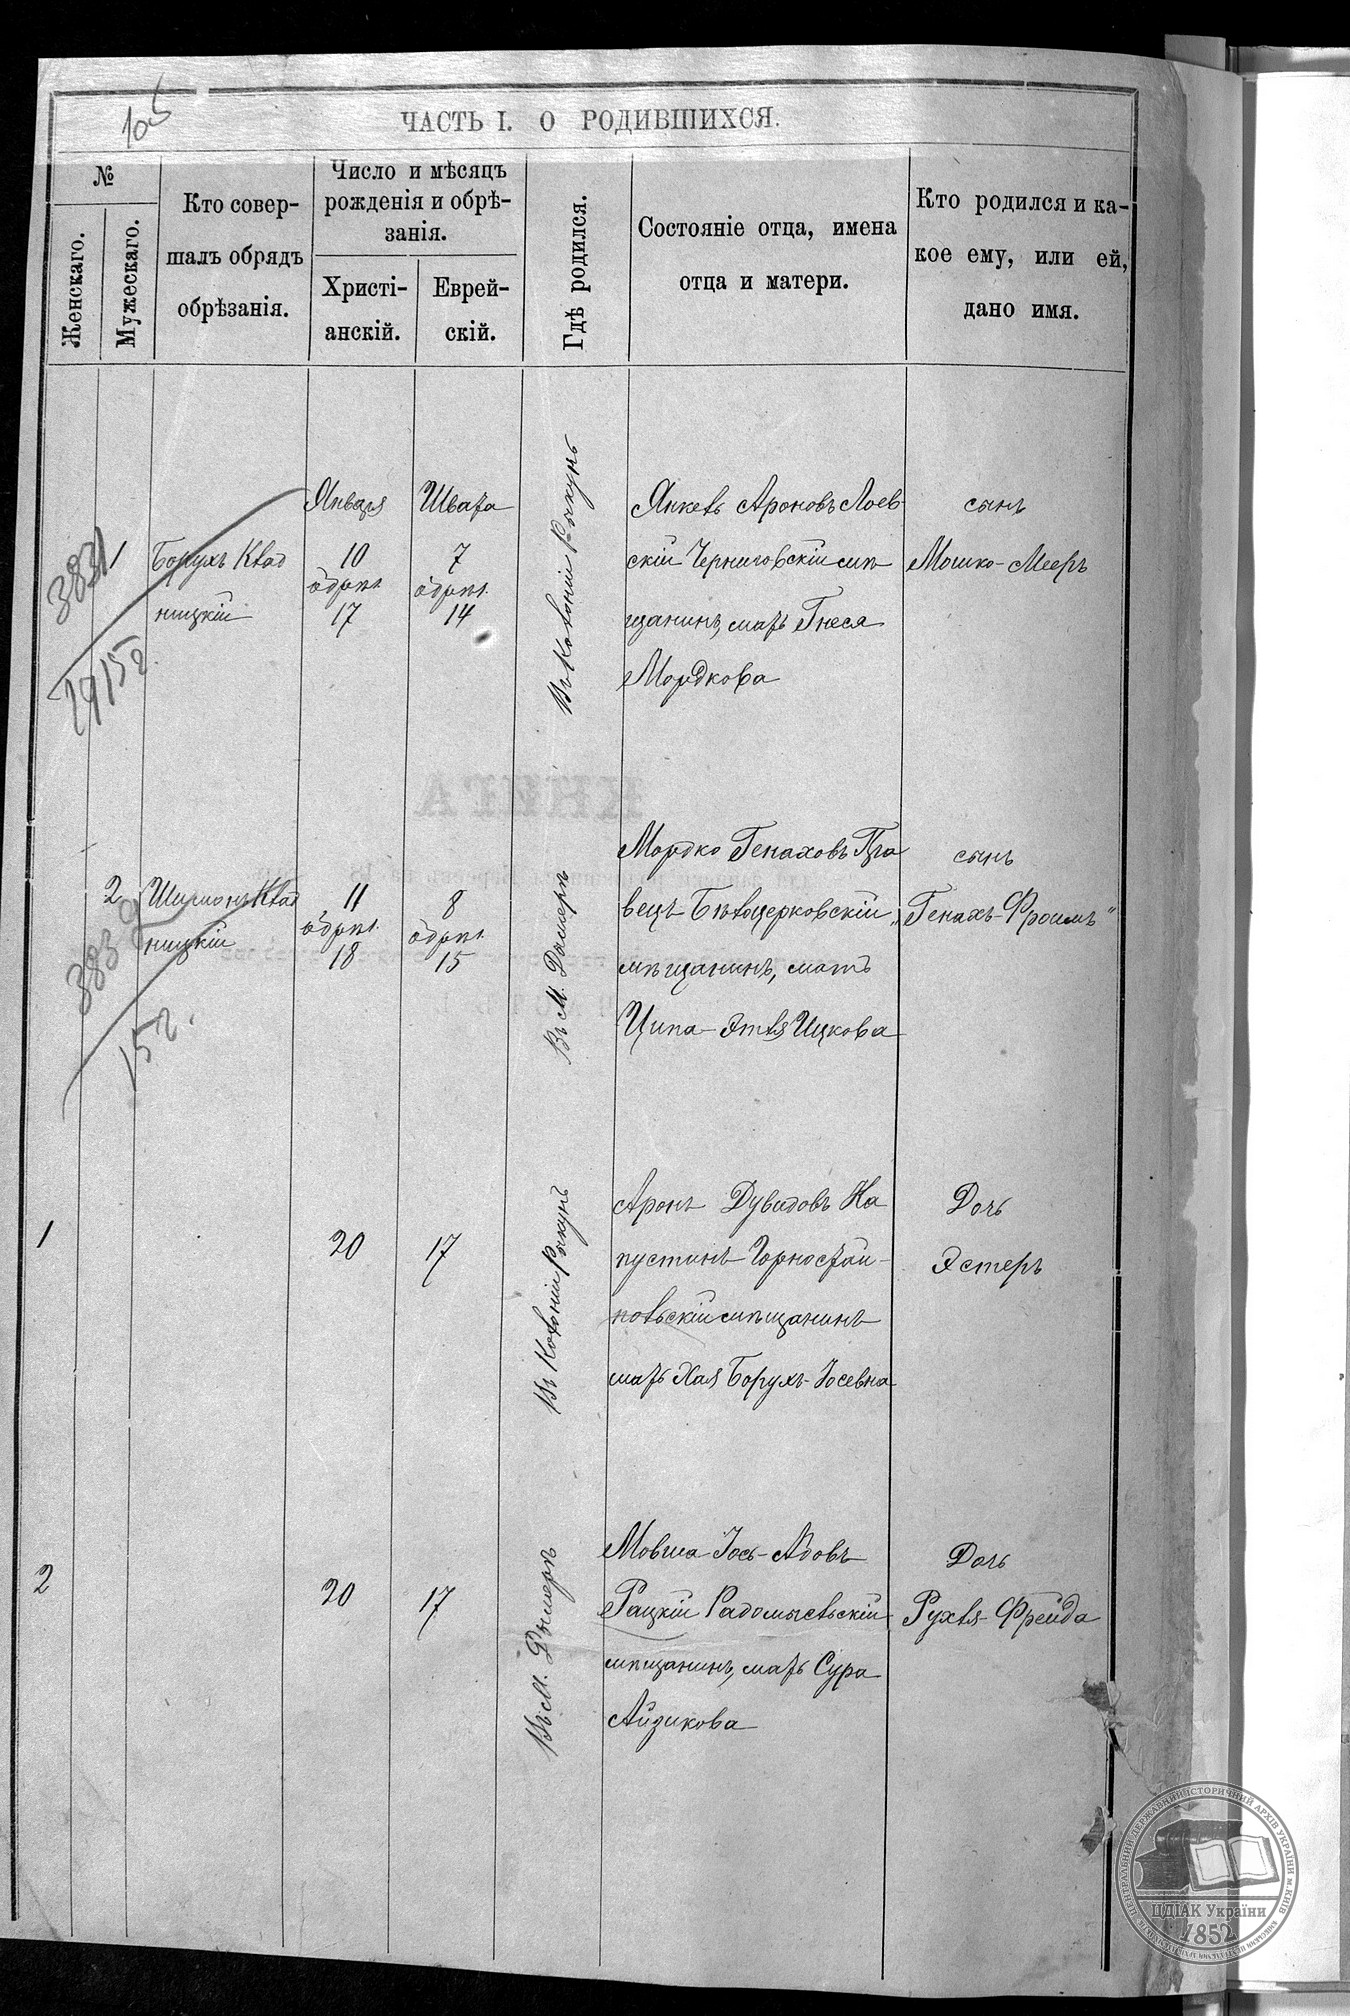 105
ЧАСТЬ I. О РОДИВШИХСЯ.
№
Женскаго.
Мужескаго.
Кто совер-
шалъ обрядъ
обрѣзанія.
Число и мѣсяцъ
рожденія и обрѣ-
занія.
Христі-
анскій.
Еврей-
скій.
Гдѣ родился.
Состояніе отца, имена
отца и матери.
Кто родился и ка-
кое ему, или ей,
дано имя.
3831
1915 г.
1
Борухъ Квад
ницкій
Января
10
обрѣз.
17
Швата
7
обрѣз.
14
Въ Колоніи Рыкунь
Янкель Ароновъ Лоев-
скій Черниговскій мѣ
щанинъ, мать Гнеся
Мордкова
сынъ
Мошко-Мееръ
2
383
15 г.
Шимонъ Квад
ницкій
11
обрѣз.
18
8
обрѣз.
15
Въ М. Дымерѣ
Мордко Генаховъ
вецъ Бѣлоцерковскій
мѣщанинъ, мать
Ципа-Этля Ицкова
сынъ
„Генахъ-Фроимъ"
1
20
17
Въ Колоніи Рыкунь
Аронъ Дувидовъ Ка
пустинъ Горностай-
польскій мѣщанинъ
мать Хая Борухъ-Іосевна
Дочь
Эстеръ
2
20
17
Въ М. Дымерѣ
Мовша Іось-Абовъ
Рацкій Радомысльскій
мѣщанинъ, мать Сура
Айзикова
Дочь
Рухля-Фрейда
КНИГА
ЦЕНТРАЛЬНИЙ ДЕРЖАВНИЙ ІСТОРИЧНИЙ АРХІВ УКРАЇНИ М.КИЇВ
ЦДІАК України
1852